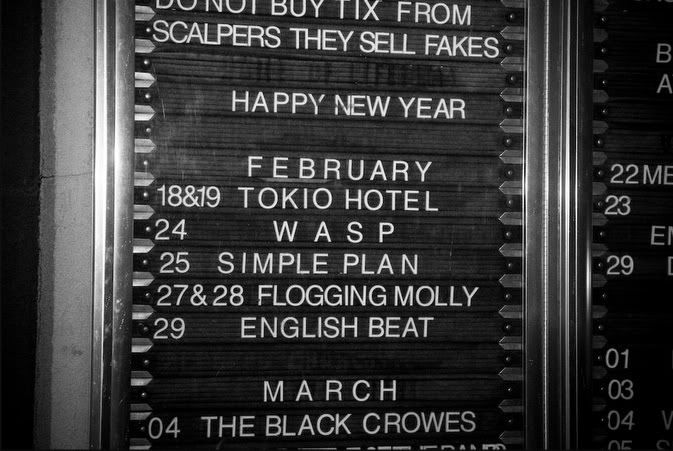 DO NOT BUY TIX FROM
SCALPERS THEY SELL FAKES
HAPPY NEW YEAR
FEBRUARY
18&19 TOKIO HOTEL
24 WASP
25 SIMPLE PLAN
27&28 FLOGGING MOLLY
29 ENGLISH BEAT
MARCH
04 THE BLACK CROWES
22
23
29
01
03
04
05